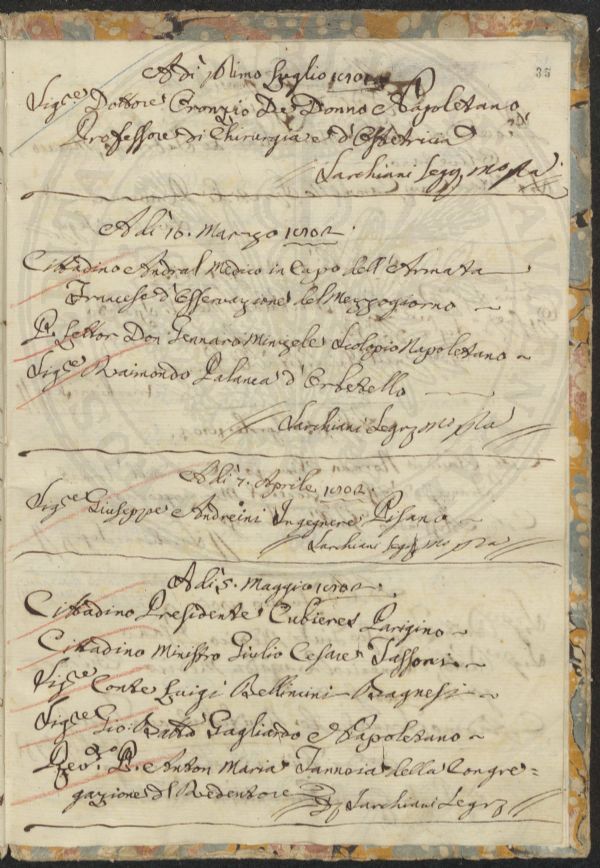 35
Adì Primo Luglio 1801
Sig.re Dottore Oronzio De Donno Napoletano
Professore di Chirurgia e d'Ostetricia
Sarchiani Seg.
Adì 16. Marzo 1802.
Cittadino Andral Medico in Capo dell'Armata
Francese d'Osservazione del Mezzogiorno
P. Lettor Don Gennaro Scolopio Napoletano
Sig.re Raimondo Palanca d'Orbetello
Sarchiani Segr.
Adì 7. Aprile 1802.
Sig.re Giuseppe Andreini Ingegnere Pisano
Sarchiani Seg.
Adì 5. Maggio 1802.
Cittadino Presidente Cubieres Parigino
Cittadino Ministro Giulio Cesare Tassoni
Sig.re Conte Luigi Bellincini Bagnesi
Sig.re Gio: Batta Gagliardo Napoletano
Rev. P. Anton Maria Tannoia della Congre=
gazione d Redentore
Sarchiani Segr.